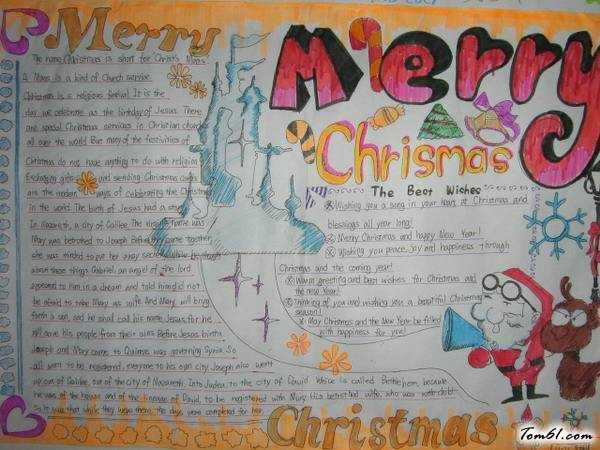 Merry
The name Christmas is short for Christ's Mass
A Mass is a kind of Church service.
Christmas is a religious festival. It is the
day we celebrate as the birthday of Jesus. There
are special Christmas services in Christian churches
all over the world. But many of the festivities of
Christmas do not have anything to do with religion.
Exchanging gifts and sending Christmas cards
are the modern ways of celebrating the Christmas
in the world. The birth of Jesus had a story
In Nazareth, a city of Galilee. The virgin's name was
Mary was betrothed to Joseph. Before they came together
she was
about these things Gabriel, an angel of the lord
appeared to him in a dream and told him did not
be afraid to take Mary as wife. And Mary will bring
forth a son, and he shall call his name Jesus for he
will save his people from their sins. Before Jesus birth,
Joseph and Mary came to was governing Syria. So
all went to be registered, everyone to his own city. Joseph also went
up out of Galilee, out of the city of Nazareth, Into Judea, to the city of David, is called Bethlehem, because
he was of the house and of the lineage of David, to be registered with Mary, his betrothed wife, who was with child.
So it was, that while they were there, the days were completed for her
Merry
Chrismas
The Best Wishes
Wishing you a song in your heart at Christmas and
blessings all year long!
Merry Christmas and happy New Year!
Wishing you peace, joy and happiness through
Christmas and the coming year!
Warm greeting and best wishes for Christmas and
the new Year!
Thinking of you and wishing you a beautiful Christmas
season!
May Christmas and the New Year be filled
with happiness for you!
Christmas
Tom61.com